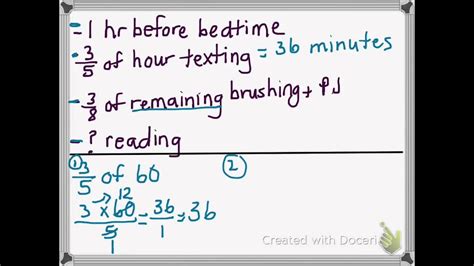 - 1 hr before bedtime
- 3/5 of hour texting = 36 minutes
- 3/8 of remaining brushing + PJ
- ? reading
① 3/5 of 60
②
12
3 x 60 / 5 = 36/1 = 36
1
Created with Doceri